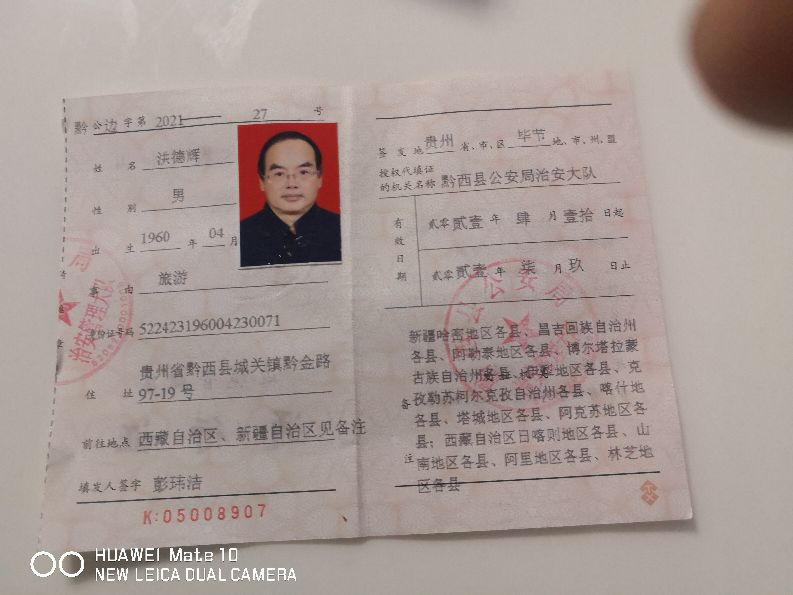 黔公边字第 2021 27 号
姓名 洪德辉
性别 男
出生 1960 年 04 月
事由 旅游
身份证号码 522423196004230071
住址 贵州省黔西县城关镇黔金路
97-19 号
前往地点 西藏自治区、新疆自治区见备注
填发人签字 彭玮洁
K:05008907
治安管理大队
签发地 贵州 省、市、区 毕节 地、市、州、盟
授权代填证
的机关名称 黔西县公安局治安大队
有效日期
贰零贰壹 年 肆 月 壹拾 日起
贰零贰壹 年 柒 月 玖 日止
备注
新疆哈密地区各县、昌吉回族自治州
各县、阿勒泰地区各县、博尔塔拉蒙
古族自治州各县、伊犁地区各县、克
孜勒苏柯尔克孜自治州各县、喀什地
各县、塔城地区各县、阿克苏地区各
县；西藏自治区日喀则地区各县、山
南地区各县、阿里地区各县、林芝地
区各县
公安局
HUAWEI Mate 10
NEW LEICA DUAL CAMERA